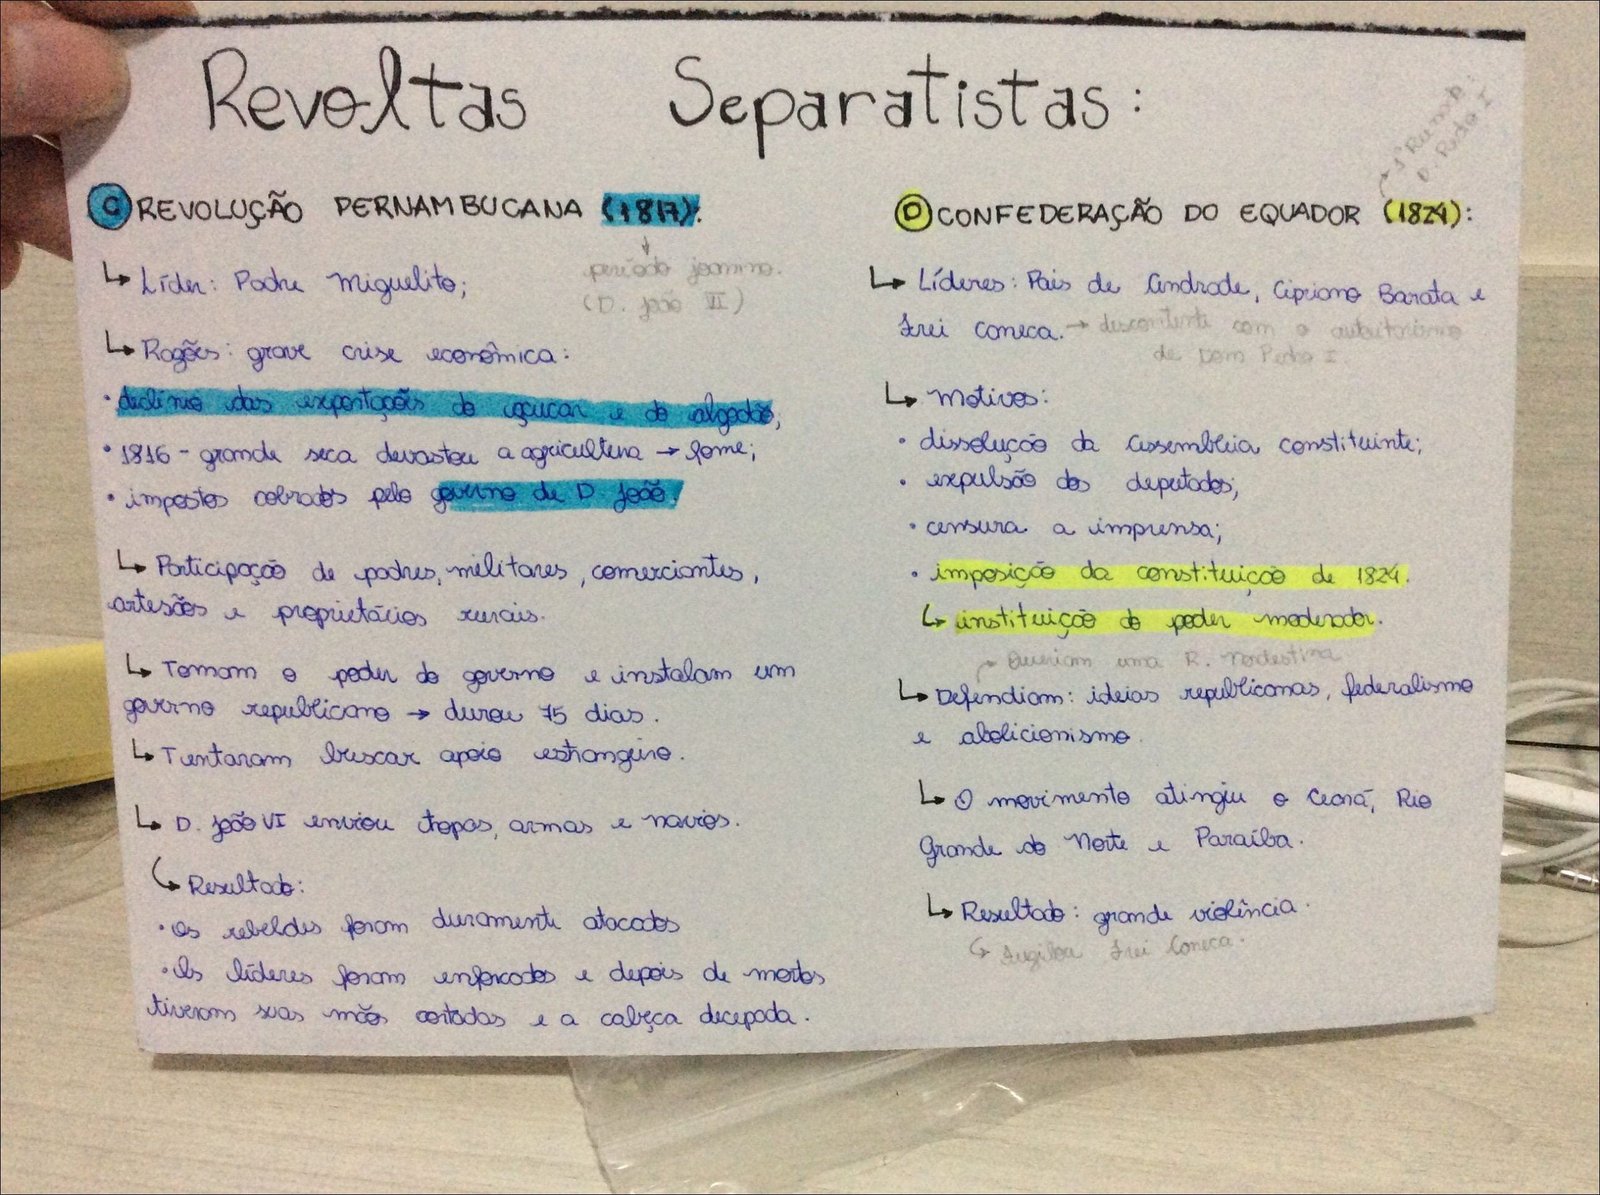 Revoltas Separatistas:
C REVOLUÇÃO PERNAMBUCANA (1817):
período joanino.
(D. João VI)
↳ Líder: Padre Miguelito;
↳ Razões: grave crise econômica:
• declínio das exportações do açúcar e do algodão,
• 1816 - grande seca devastou a agricultura → fome;
• impostos cobrados pelo governo de D. João.
↳ Participação de padres, militares, comerciantes,
artesãos e proprietários rurais.
↳ Tomam o poder do governo e instalam um
governo republicano → durou 75 dias.
↳ Tentaram buscar apoio estrangeiro.
↳ D. João VI enviou tropas, armas e navios.
↳ Resultado:
• Os rebeldes foram duramente atacados
• Os líderes foram enforcados e depois de mortos
tiveram suas mãos cortadas e a cabeça decepada.
D CONFEDERAÇÃO DO EQUADOR (1824):
D. Pedro I
↳ Líderes: Pais de Andrade, Cipriano Barata e
Frei Caneca. → descontente com o autoritarismo
de Dom Pedro I.
↳ Motivos:
• dissolução da Assembleia constituinte;
• expulsão dos deputados;
• censura a imprensa;
• imposição da constituição de 1824.
↳ instituição do poder moderador.
Queriam uma R. Nordestina
↳ Defendiam: ideias republicanas, federalismo
e abolicionismo.
↳ O movimento atingiu o Ceará, Rio
Grande do Norte e Paraíba.
↳ Resultado: grande violência.
↳ Frei Caneca.